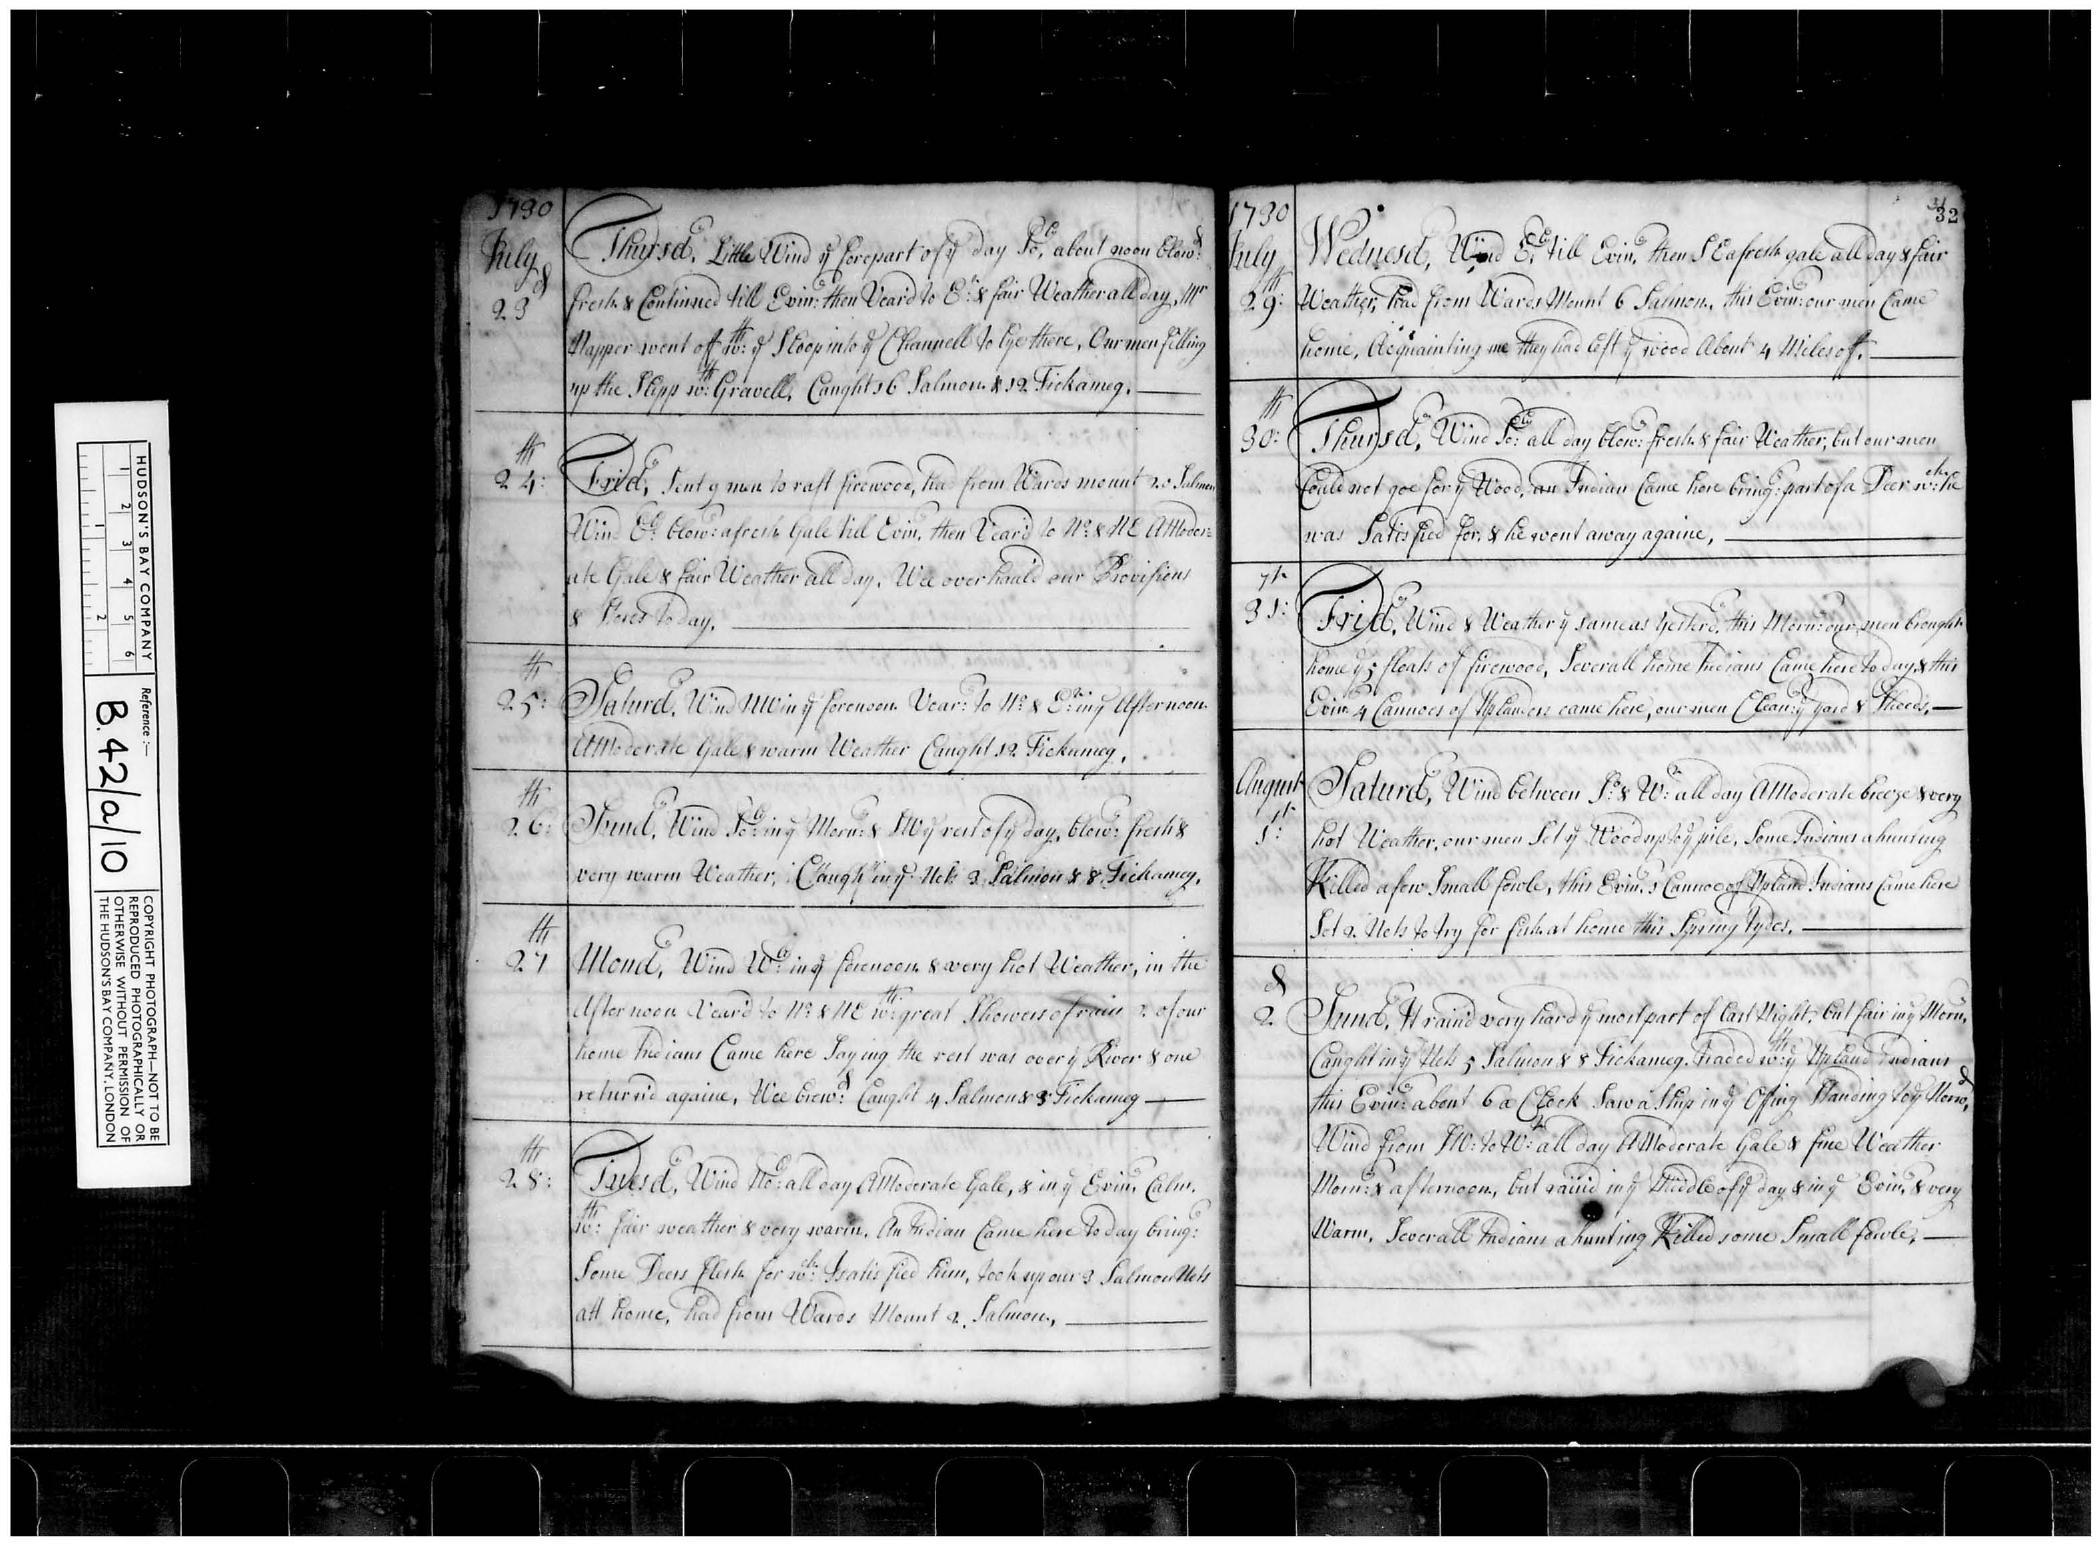 HUDSON'S BAY COMPANY
1 2 3 4 5 6
1 2
Reference :—
B.42/a/10
COPYRIGHT PHOTOGRAPH—NOT TO BE
REPRODUCED PHOTOGRAPHICALLY OR
OTHERWISE WITHOUT PERMISSION OF
THE HUDSON'S BAY COMPANY, LONDON
1730
July
23d
Thursd, Little Wind ye forepart of ye day So, about noon blowd
fresh & Continued till Evin: then Veard to E: & fair Weather all day, Mr
Napper went off wth: ye Sloop into ye Channell to lye there, Our men filling
up the Slipp wth: Gravell, Caught 16 Salmon & 12 Tickameg.
24th:
Fridy, Sent 9 men to raft firewood, had from Wards mount 20 Salmon
Wind E: blow: a fresh Gale till Evin, then Veard to No: & NE A Moder:
ate Gale & fair Weather all day. Wee overhaald our Provisions
& Stores to day.
25th:
Saturdy, Wind NW in ye forenoon Vear: to No: & E: in ye Afternoon
A Moderate Gale & warm Weather Caught 12 Tickameg.
26th:
Sundy, Wind So: in ye Morn: & SW ye rest of ye day, blow: fresh &
very warm Weather, Caught in ye Nets 2 Salmon & 8 Tickameg.
27th
Mondy, Wind W: in ye forenoon & very hot Weather, in the
Afternoon Veard to No: & NE wth: great Showers of rain 2 of our
home Indians Came here Saying the rest was over ye River & one
returnd againe, Wee brewd: Caught 4 Salmon & 3 Tickameg
28th:
Tuesdy, Wind No: all day A Moderate Gale, & in ye Evin, Calm,
wth: fair weather & very warm, An Indian Came here to day bring:
Some Deers flesh for wch: I satisfied him, took up our 3 Salmon Nets
att home, had from Wards Mount 2 Salmon,
1730
32
July
29th:
Wednesdy, Wind E: till Evin, then SE a fresh gale all day & fair
Weather, had from Wards Mount 6 Salmon, this Evin: our men Came
home, Acquainting me they had left ye wood About 4 Miles off,
30th:
Thursdy, Wind So: all day blow: fresh & fair Weather, but our men
Could not goe for ye Wood, an Indian Came here bring: part of a Deer wch: he
was Satisfied for, & he went away againe,
31st:
Fridy, Wind & Weather ye same as Yesterd, this Morn: our men brought
home ye 5 floats of firewood, Severall home Indians Came here to day & this
Evin 4 Cannoes of Uplanders came here, our men Clean: ye Yard & Sheeds,
August
1st:
Saturdy, Wind between So: & W: all day A Moderate breeze & very
hot Weather, our men Set ye Wood up to ye pile, Some Indians a hunting
Killed a few Small fowle, this Evin, 1 Cannoe of Upland Indians Came here
Set 2 Nets to try for fish at home this Spring tydes,
2d
Sundy, It raind very hard ye most part of last Night, but fair in ye Morn,
Caught in ye Nets 5 Salmon & 8 Tickameg. Traded wth: ye Upland Indians
this Evin: about 6 a Clock Saw a Ship in ye Offing Standing to ye Norwd,
Wind from SW: to W: all day A Moderate Gale & fine Weather
Morn: & afternoon, but raind in ye Middle of ye day & in ye Evin, & very
Warm, Severall Indians a hunting Killed some Small fowle,